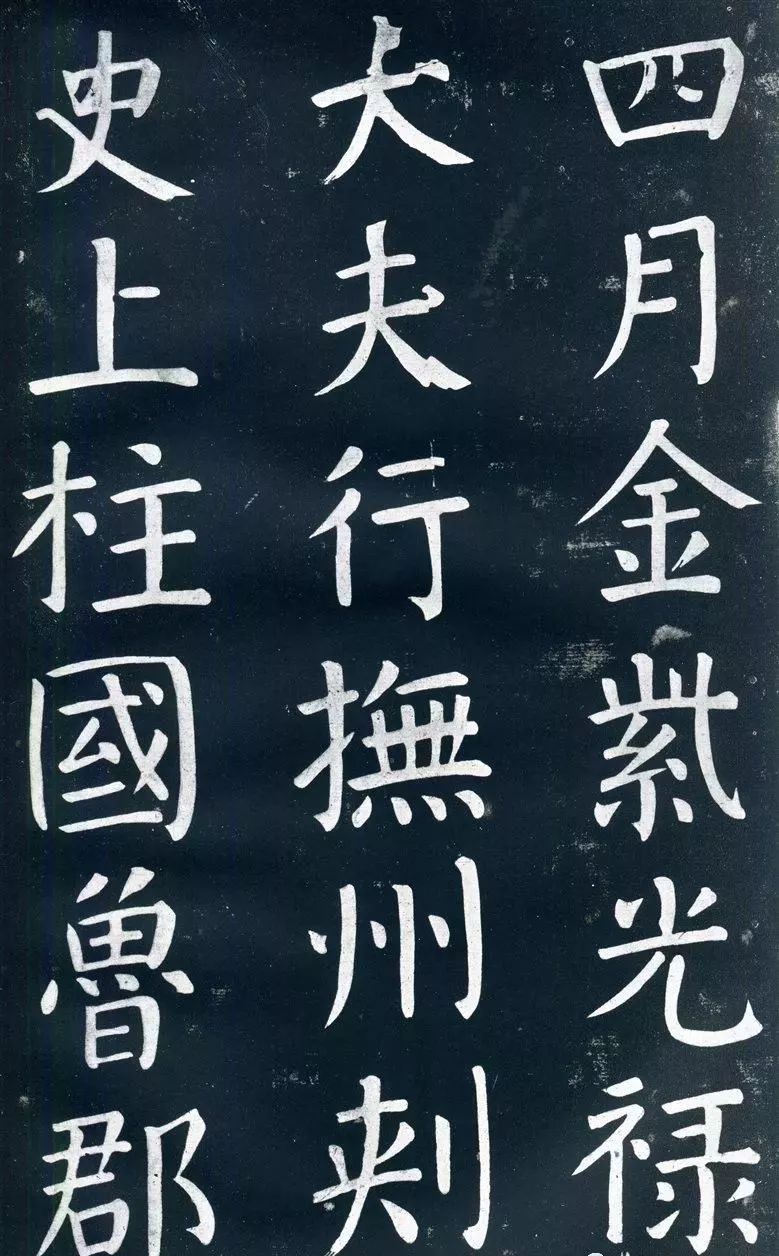 四月金紫光禄
大夫行撫州刺
史上柱國魯郡